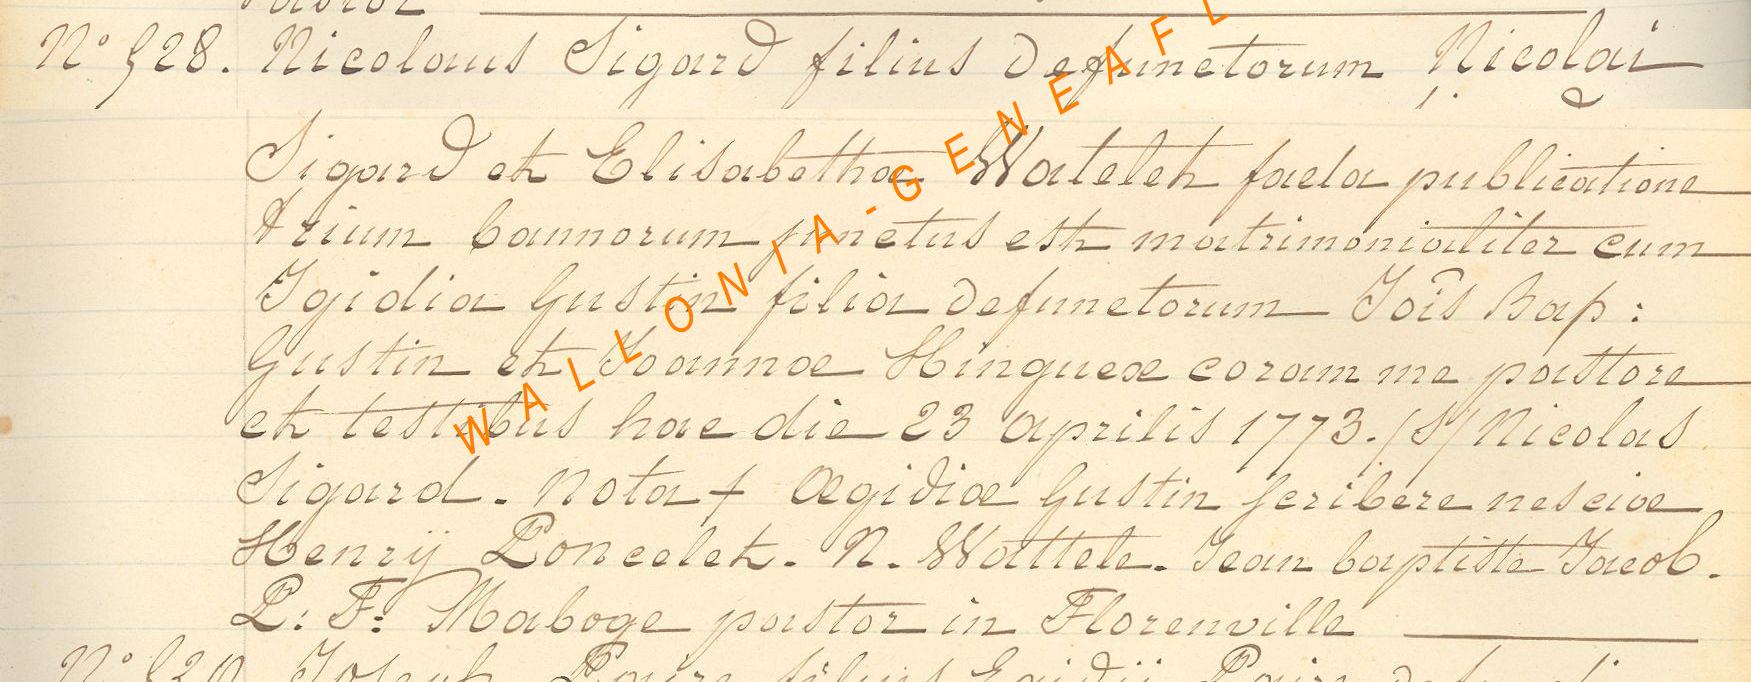 pastor
N° 528. Nicolaus Sigard filius defunctorum Nicolai
Sigard et Elisabethæ Watelet facta publicatione
trium bannorum junctus est matrimonialiter cum
Igidia Gustin filia defunctorum Jois Bap:
Gustin et Joannæ Hinguex coram me pastore
et testibus hac die 23 aprilis 1773. (S) Nicolas
Sigard. Nota + Ægidiæ Gustin scribere nesciæ
Henrÿ Poncelet. N. Wattele. Jean baptiste Jacob.
P: F: Maboge pastor in Florenville
Joseph
WALLONIA-GENEAFL